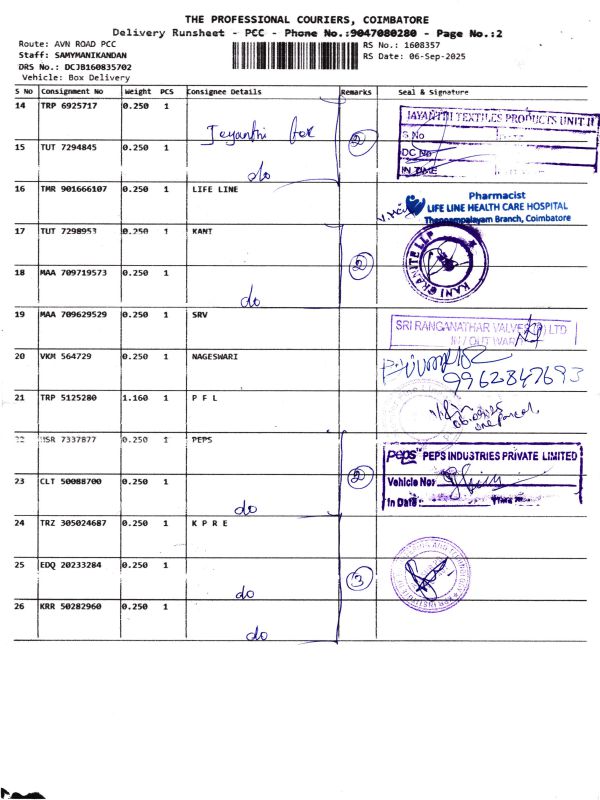 THE PROFESSIONAL COURIERS, COIMBATORE
Delivery Runsheet - PCC - Phone No.:9047080280 - Page No.:2
Route: AVN ROAD PCC
RS No.: 1608357
Staff: SAMYMANIKANDAN
RS Date: 06-Sep-2025
DRS No.: DCJB160835702
Vehicle: Box Delivery
S No Consignment No Weight PCS Consignee Details Remarks Seal & Signature
14 TRP 6925717 0.250 1 Jeyanthi Tex
JAYANTHI TEXTILES PRODUCTS UNIT II
G No
DC No
IN TIME
2
15 TUT 7294845 0.250 1 do
16 TMR 901666107 0.250 1 LIFE LINE
Pharmacist
LIFE LINE HEALTH CARE HOSPITAL
Thennampalayam Branch, Coimbatore
17 TUT 7298953 0.250 1 KANT
KANI GRANITE LLP
2
18 MAA 709719573 0.250 1 do
19 MAA 709629529 0.250 1 SRV
SRI RANGANATHAR VALVES (P) LTD
IN / OUT WARD
20 VKM 564729 0.250 1 NAGESWARI
9962847693
21 TRP 5125280 1.160 1 P F L
06.09.25
one parcel,
22 HSR 7337877 0.250 1 PEPS
peps PEPS INDUSTRIES PRIVATE LIMITED
Vehicle No:
In Date: Time
2
23 CLT 50088700 0.250 1 do
24 TRZ 305024687 0.250 1 K P R E
25 EDQ 20233284 0.250 1 do
3
26 KRR 50282960 0.250 1 do